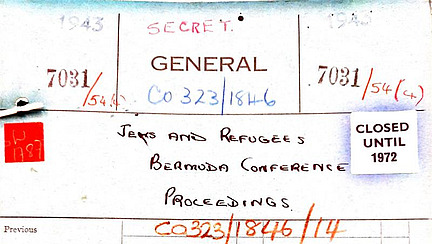 1943 SECRET. 1943
GENERAL
7031/54(4) CO 323/1846 7031/54(4)
JEWS AND REFUGEES
BERMUDA CONFERENCE
PROCEEDINGS.
CLOSED
UNTIL
1972
Previous
CO323/1846/14